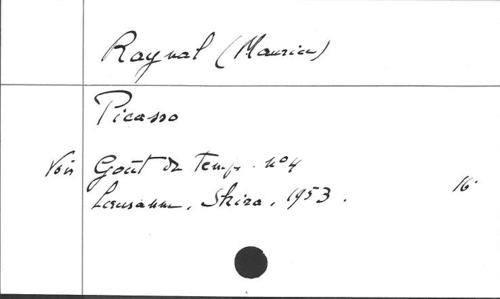 Raynal (Maurice)
Picasso
Voir Goût du Temps. no 4
Lausanne, Skira, 1953. 16°